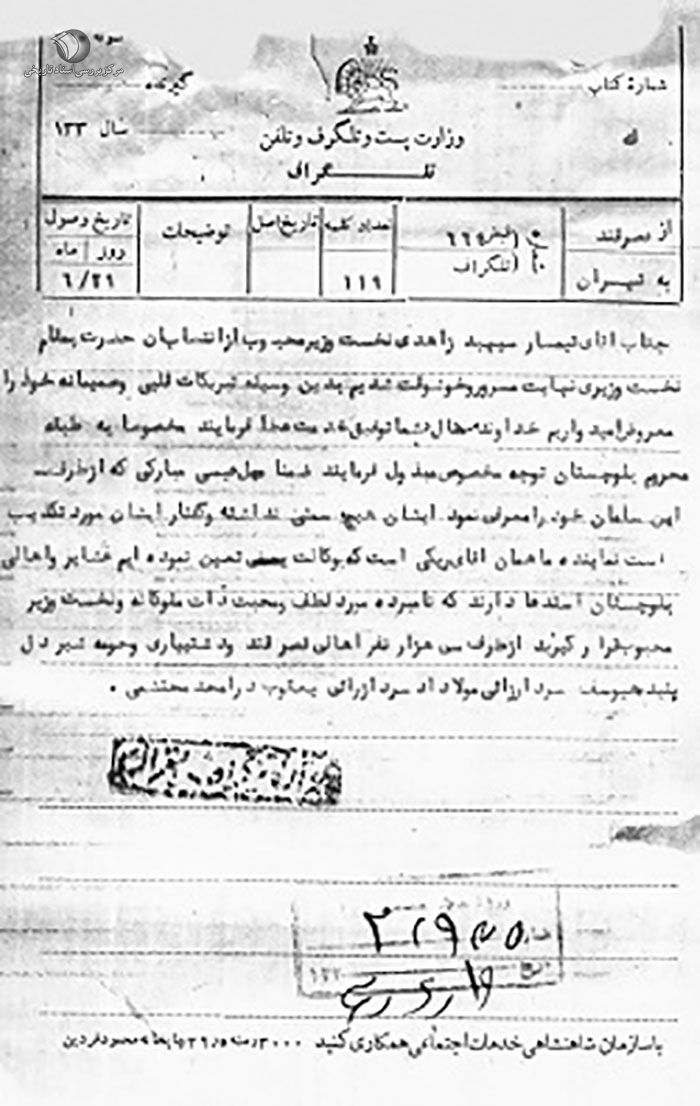 مرکز بررسی اسناد تاریخی
شمارهٔ کتاب
گیرنده
وزارت پست و تلگراف و تلفن
سال ۱۳۳
تلگراف
از قصرقند
به تهران
قبض ۶۶۹
تلگراف
تعداد کلمه
۱۱۹
تاریخ اصل
توضیحات
تاریخ وصول
روز ماه
۶/۲۹
جناب اقای تیمسار سپهبد زاهدی نخست وزیر محبوب از انتصابان حضرت بمقام
نخست وزیری نهایت مسرور و خوشوقت شدیم بدین وسیله تبریکات قلبی وصمیمانه خود را
معروض امیدواریم خداوند متعال بشما توفیق خدمت عطا فرمایند مخصوصا به طبقه
محروم بلوچستان توجه مخصوص مبذول فرمایند ضمنا مبارکی که ازطرف
این سامان خود را معرفی نمود ایشان هیچ سمتی نداشته وگفتار ایشان مورد تکذیب
است نماینده ما همان اقای ریکی است که بوکالت تعین نموده ایم عشایر واهالی
بلوچستان استدعا دارند که نامبرده مورد لطف ومحبت ذات ملوکانه ونخست وزیر
محبوب قرار گیرند ازطرف سی هزار نفر اهالی قصرقند ودشتیاری وحومه
یوسف سردارزائی مولاداد سردارزائی یعقوب درامحمد محتشمی .
باسازمان شاهنشاهی خدمات اجتماعی همکاری کنید